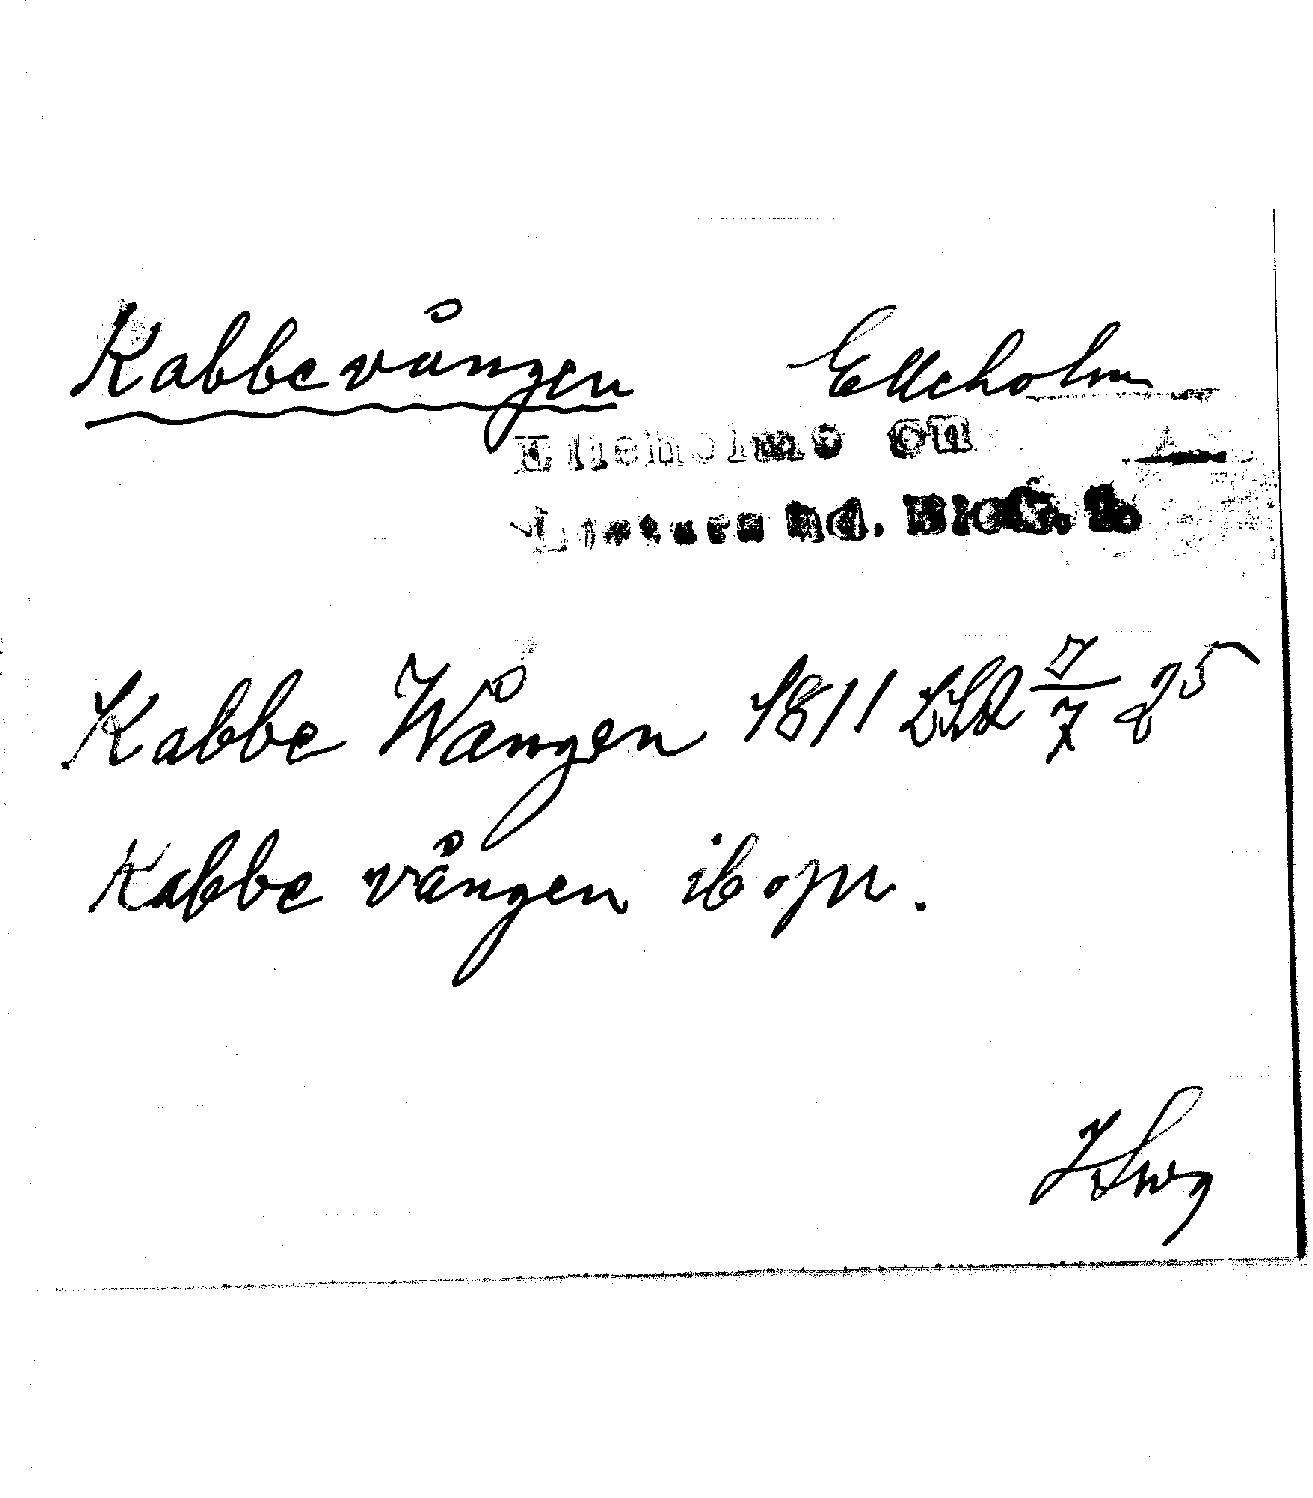 Kabbevången Elleholm
Elleholms sn
Listers hd. Blek. l.
Kabbe Wången 1811 LSA 7/7 q5
Kabbe vången ib opr.